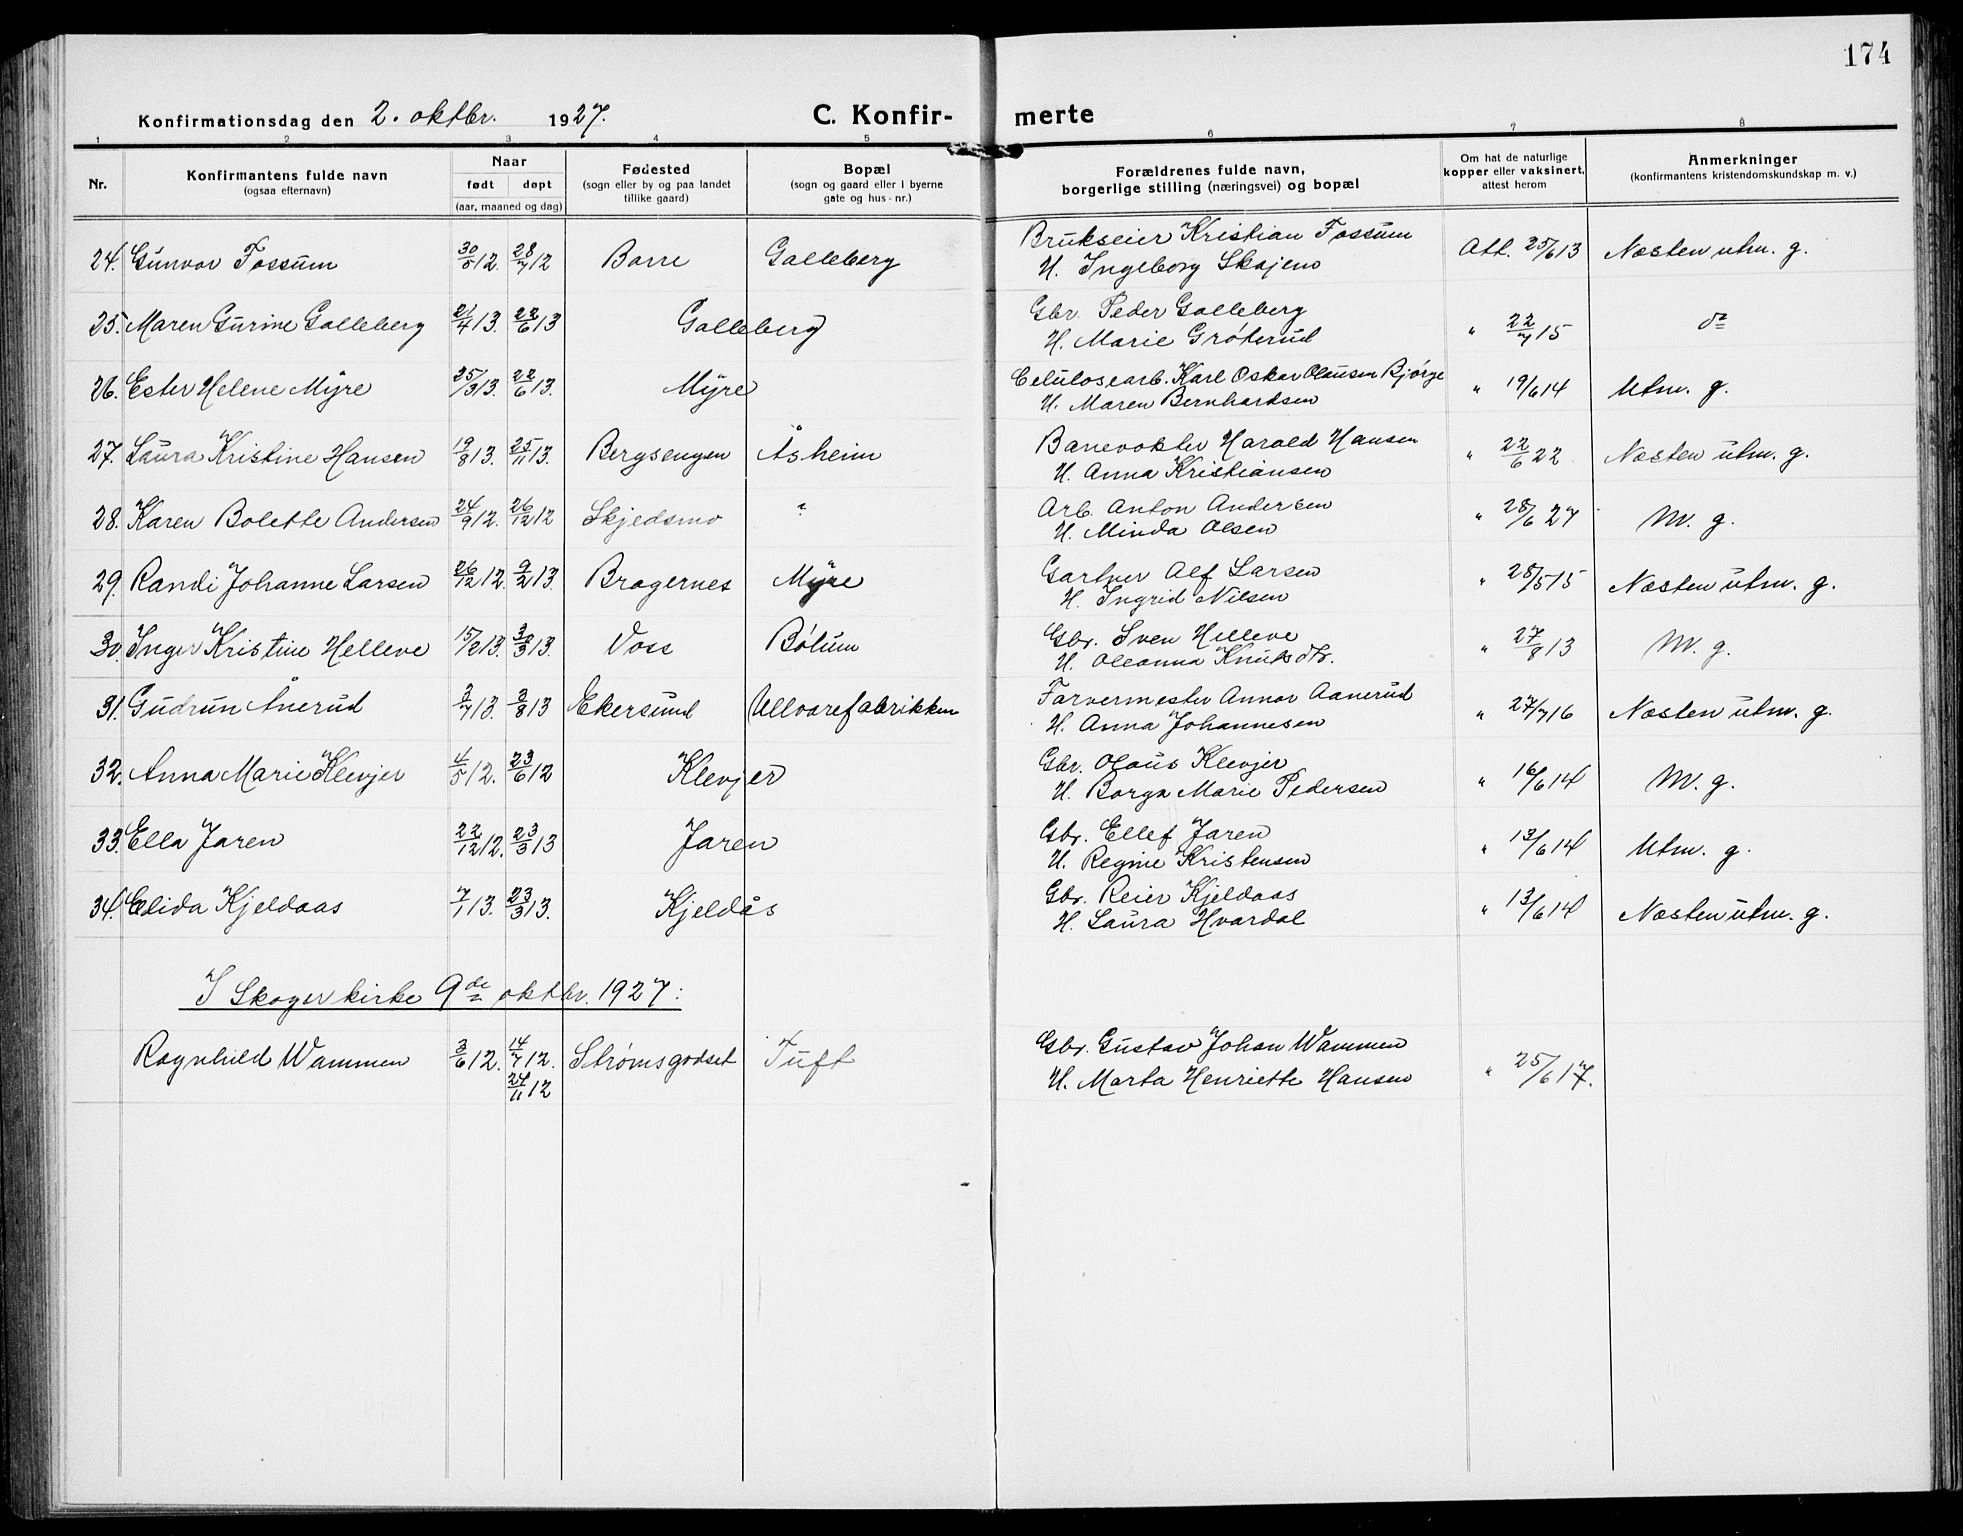 174
Konfirmationsdag den 2. oktbr. 1927. C. Konfir- merte
1 2 3 4 5 6 7 8
Nr. Konfirmantens fulde navn (ogsaa efternavn) Naar født døpt (aar, maaned og dag) Fødested (sogn eller by og paa landet tillike gaard) Bopæl (sogn og gaard eller i byerne gate og hus-nr.) Forældrenes fulde navn, borgerlige stilling (næringsvei) og bopæl Om hat de naturlige kopper eller vaksinert, attest herom Anmerkninger (konfirmantens kristendomskundskap m. v.)
24. Gunvor Fossum 30/5 12. 28/7 12 Borre Galleberg Brukseier Kristian Fossum Att. 25/6 13 Næsten utm. g.
H. Ingeborg Skajem
25. Maren Gurine Galleberg 21/4 13. 22/6 13 Galleberg Gbr. Peder Galleberg " 22/7 15 do
H. Marie Grøterud
26. Ester Helene Myre 25/3 13. 22/6 13. Myre Celulosearb. Karl Oskar Olausen Bjørge " 19/6 14 Utm. g.
H. Maren Bernhardsen
27. Laura Kristine Hansen 19/8 13. 25/11 13. Bergsengen Åsheim Banevokter Harald Hansen " 22/6 22 Næsten utm. g.
H. Anna Kristiansen
28. Karen Bolette Andersen 24/9 12. 26/12 12 Skjedsmo " Arb. Anton Andersen " 28/6 27 M. g.
H. Minda Olsen
29. Randi Johanne Larsen 26/12 12. 9/2 13. Bragernes Myre Gartner Alf Larsen " 28/5 15 Næsten utm. g.
H. Ingrid Nilsen
30. Inger Kristine Helleve 15/2 13. 3/3 13. Voss Bølum Gbr. Sven Helleve " 27/8 13 M. g.
H. Oleanna Knutsdtr.
31. Gudrun Ånerud 3/7 13. 3/8 13 Ekersund Ullvarefabrikken Farvermester Annar Aanerud " 27/7 16 Næsten utm. g.
H. Anna Johannesen
32. Anna Marie Klevjer 4/5 12. 23/6 12 Klevjer Gbr. Olaus Klevjer " 16/6 14 M. g.
H. Borga Marie Pedersen
33. Ella Jaren 22/12 12. 23/3 13 Jaren Gbr. Ellef Jaren " 13/6 14 Utm. g.
H. Regine Kristensen
34. Elida Kjeldaas 7/1 13. 23/3 13. Kjeldås Gbr. Reier Kjeldaas " 13/6 14 Næsten utm. g.
H. Laura Hvardal
I Skoger kirke 9de oktbr. 1927:
Ragnhild Wammen 3/6 12. 14/7 12. Strømsgodset Tuft Gbr. Gustav Johan Wammen " 25/6 17.
24/11 12 H. Marta Henriette Hansen